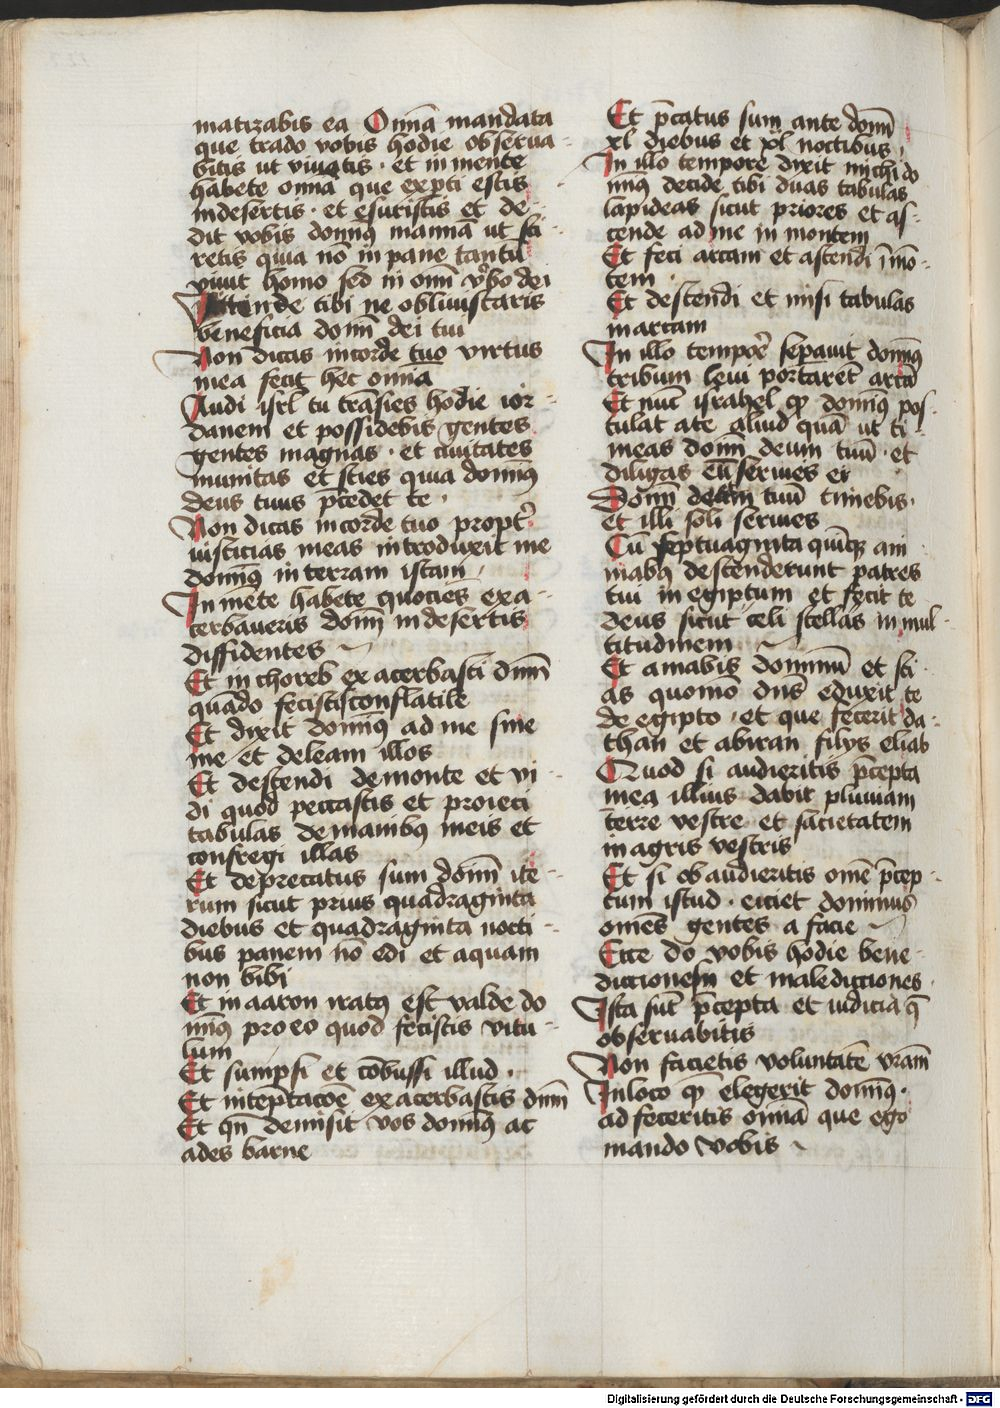 matizabis ea Om̄a mandata
que trado vobis hodie obserua-
bitis ut viuatis · et in mente
habete om̄a que exp̱ti estis
in desertis · et esuristis et de-
dit vobis domin9 mannā ut sci-
retis quia nō in pane tantū
viuit homo sed in om̄i v̾bo dei
Attende tibi ne obliuiscaris
beneficia dom̄i dei tui
Non dicas in corde tuo virtus
mea fecit hec om̄ia
Audi isrl̄ tu trāsies hodie ior-
danem et possidebis gentes
gentes magnas · et ciuitates
munitas et scies quia domin9
deus tuus p̄cedet te ·
Non dicas in corde tuo propt̾
iusticias meas introduxit me
domin9 in terram istam
In mēte habete quociēs exa-
cerbaueris dom̄ in desertis
diffidentes
Et in choreb exacerbasti dnm̄
quādo fecistis conflatile
Et dixit domin9 ad me sine
me et deleam illos
Et descendi de monte et vi-
di quod peccastis et proieci
tabulas de manib9 meis et
confregi illas
Et deprecatus sum dom̄ ite-
rum sicut prius quadraginta
diebus et quadraginta nocti-
bus panem nō edi et aquam
non bibi
Et in aaron irat9 est valde do
min9 pro eo quod fecistis vitu-
lum
Et sumpsi et cōbussi illud ·
Et in tēptacōe exacerbastis dnm̄
Et qn̄ demisit vos domin9 ac
ades barne
Et p̄catus sum ante dom̄
xl diebus et xl noctibus ·
In illo tempore dixit michi do
min9 decide tibi duas tabulas
lapideas sicut priores et as-
cende ad me in montem
Et feci arcam et ascendi ī mō-
tem ·
Et descendi et misi tabulas
in arcam
In illo tempoe̾ sep̱auit domin9
tribum leui portaret̄ arcā
Et nūc israhel qd̄ domin9 pos-
tulat a te aliud quā ut ti-
meas dom̄ deum tuū · et
diligas eū seruies ei
Dom̄ deum tuū timebis ·
et illi soli seruies
Cū septuaginta quinq3 ani
mab9 descenderunt patres
tui in egiptum et fecit te
deus sicut celi stellas in mul-
titudinem
Et amabis dominū et sci-
as quomō dn̄s eduxit te
de egipto · et que fecerit da-
than et abiran filijs eliab
Quod si audieritis p̄cepta
mea illius dabit pluuiam
terre vestre et sacietatem
in agris vestris
Et si obaudieritis omē p̄cep-
tum istud · eiciet dominus
omēs gentes a facie
Ecce do vobis hodie bene-
dictionem et maledictiones
Ista sūt p̄cepta et iudicia q̄
obseruabitis
Non facietis voluntatē vr̄am
In loco qm̄ elegerit domin9 ·
ad feceritis om̄a que ego
mando vobis
Digitalisierung gefördert durch die Deutsche Forschungsgemeinschaft - DFG